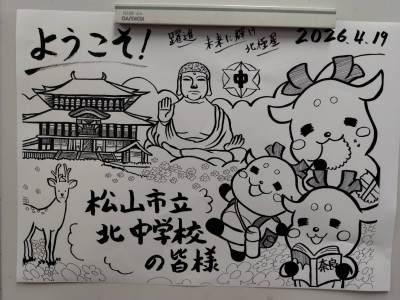 ようこそ!
躍進
未来に輝け!!
北極星
2026.4.19
中
松山市立
北中学校
の皆様
奈良